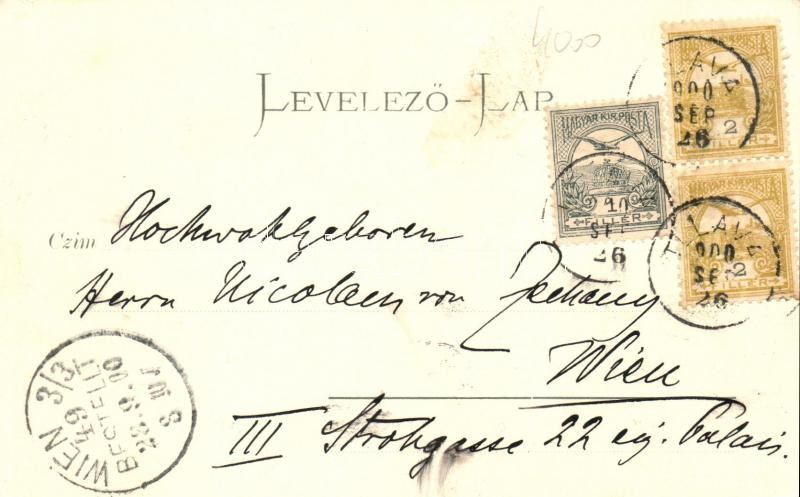 4000
LEVELEZŐ-LAP
MAGYAR KIR. POSTA
2
FILLÉR
MAGYAR KIR. POSTA
FILLÉR
MAGYAR KIR. POSTA
2
FILLÉR
900
SEP
26
900
SEP
26
26
Czim
Hochwohlgeboren
Herrn Nicolaus von
Wien
III Strohgasse 22 eig. Palais.
WIEN 3/3
49
BESTELLT
28.9.00